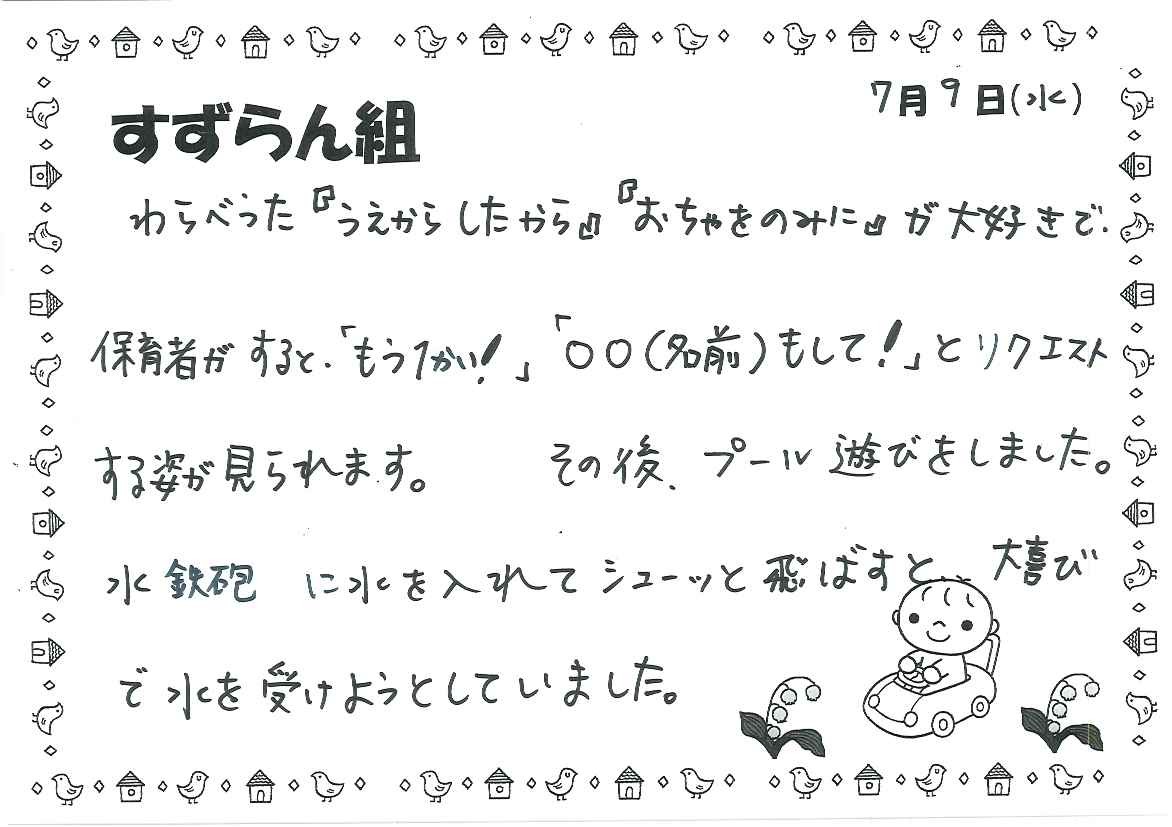 7月9日(水)
すずらん組
わらべうた『うえからしたから』『おちゃをのみに』が大好きで、
保育者がすると、「もう1かい!」「○○(名前)もして!」とリクエスト
する姿が見られます。 その後、プール遊びをしました。
水鉄砲 に水を入れてシューッと飛ばすと、大喜び
で水を受けようとしていました。